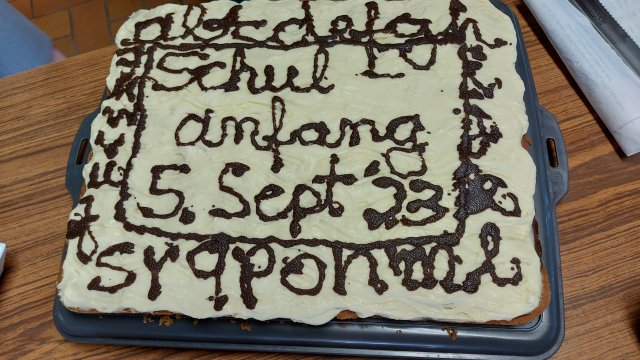 abcdefgh
Schul
anfang
5. Sept '23
tsrqponml